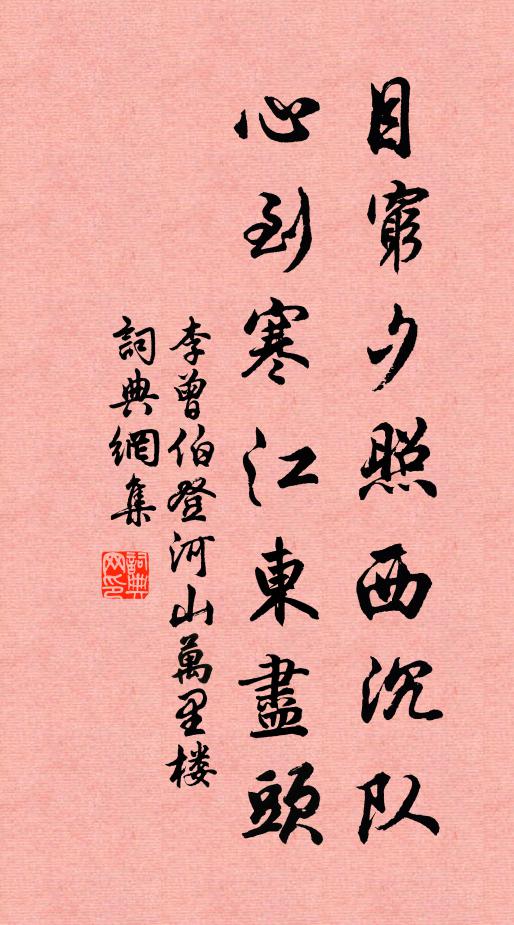 目窮夕照西沉队
心到寒江東盡頭
李曾伯登河山萬里楼
詞典網集
詞典网印